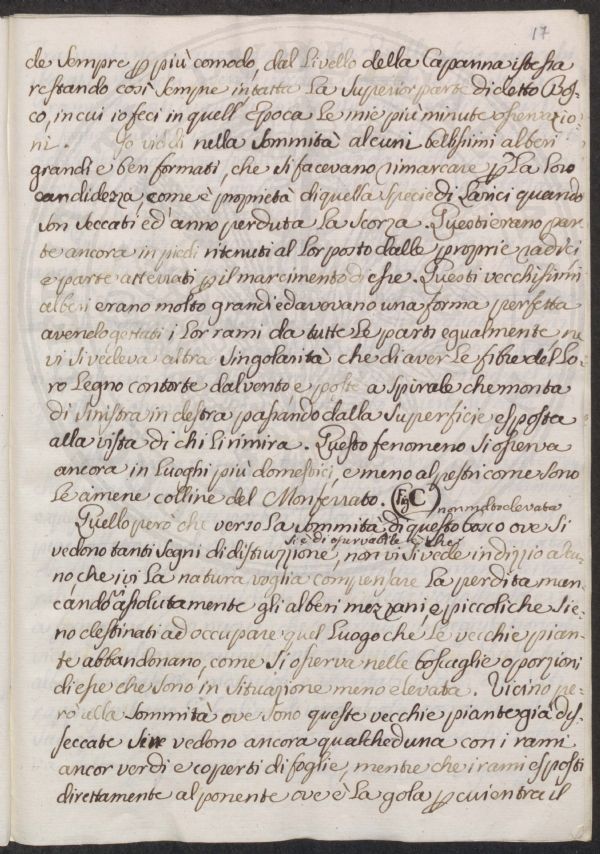 17
de sempre p più comodo, dal Livello della Capanna istessa
restando così sempre intatta La superior parte di detto Bos-
co, in cui io feci in quell' Epoca Le mie più minute osservazio-
ni. Io viddi nella sommità alcuni bellissimi alberi
grandi e ben formati, che si facevano rimarcare p La loro
candidezza, come è proprietà di quella specie di Larici quando
son seccati ed anno perduta La scorza. Questi erano par-
te ancora in piedi ritenuti al Lor posto dalle proprie radici
e parte atterrati p il marcimento di esse. Questi vecchissimi
alberi erano molto grandi ed avevano una forma perfetta
avendo gettati i Lor rami da tutte Le parti egualmente, ne
vi si vedeva altra singolarità che di aver Le fibre del Lo-
ro Legno contorte dal vento e poste a spirale che monta
di sinistra in destra passando dalla superficie esposta
alla vista di chi Li rimira. Questo fenomeno si osserva
ancora in Luoghi più domestici, e meno alpestri come sono
Le amene colline del Monferrato. Fig C
non molto elevata
Quello però che verso La sommità di questo bosco ove si
si è di osservabile è che
vedono tanti segni di distruzzione, non vi si vede indizio alcu-
no, che ivi La natura voglia compensare La perdita man-
cando assolutamente gli alberi mezzani, e piccoli che sie-
no destinati ad occupare quel Luogo che Le vecchie pian-
te abbandonano, come si osserva nelle boscaglie o porzioni
di esse che sono in situazione meno elevata. Vicino pe-
rò alla sommità ove sono queste vecchie piante già dis-
seccate se ne vedono ancora qualcheduna con i rami
ancor verdi e coperti di foglie, mentre che i rami esposti
direttamente al ponente ove è La gola p cui entra il